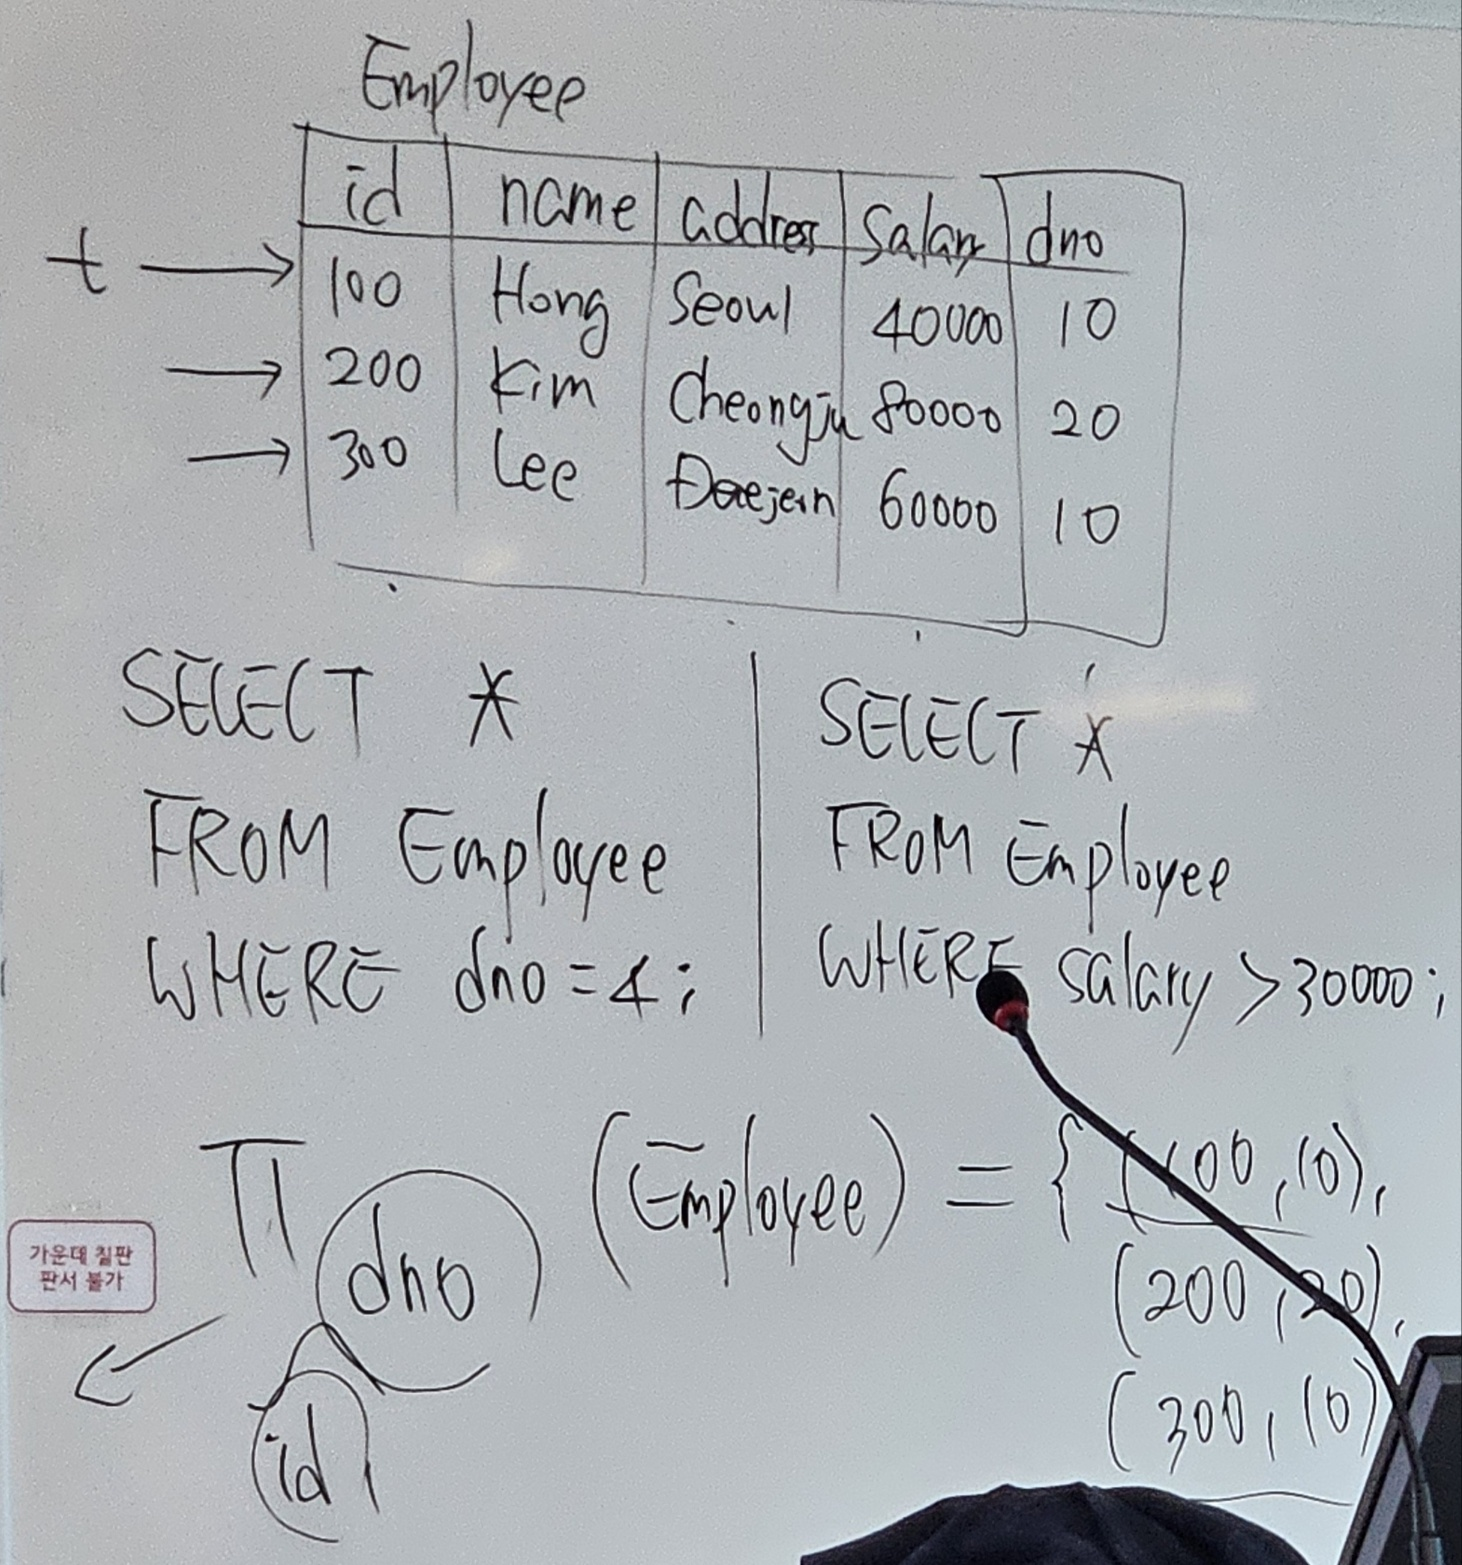 Employee
id name address salary dno
t → 100 Hong Seoul 40000 10
→ 200 Kim Cheongju 80000 20
→ 300 Lee Daejein 60000 10
SELECT *
FROM Employee
WHERE dno = 4;
SELECT *
FROM Employee
WHERE salary > 30000;
π dno (Employee) = { (100, 10),
(200, 20),
(300, 10)
id,
가운데 칠판
판서 불가